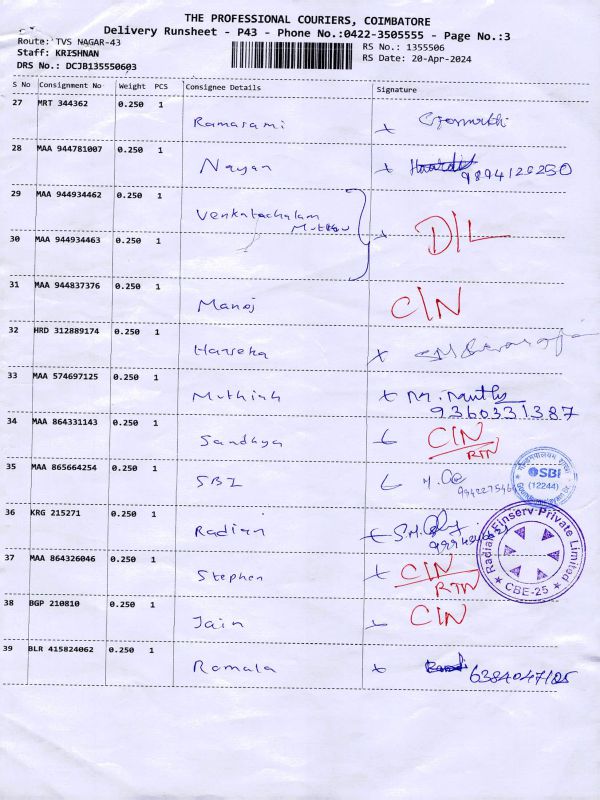 THE PROFESSIONAL COURIERS, COIMBATORE
Delivery Runsheet - P43 - Phone No.:0422-3505555 - Page No.:3
Route: TVS NAGAR-43
RS No.: 1355506
Staff: KRISHNAN
RS Date: 20-Apr-2024
DRS No.: DCJB135550603
S No Consignment No Weight PCS Consignee Details Signature
27 MRT 344362 0.250 1
Ramasami
28 MAA 944781007 0.250 1
Nayan 9894126250
29 MAA 944934462 0.250 1
Venkatachalam
D/L
30 MAA 944934463 0.250 1
31 MAA 944837376 0.250 1
Manoj C/N
32 HRD 312889174 0.250 1
33 MAA 574697125 0.250 1
Muthiah
9360331387
34 MAA 864331143 0.250 1
Sandhya C/N
RTN
35 MAA 865664254 0.250 1
SBI
SBI
(12244)
36 KRG 215271 0.250 1
Radian
Radian Finserv Private Limited
CBE-25
37 MAA 864326046 0.250 1
Stephen C/N
RTN
38 BGP 210810 0.250 1
Jain C/N
39 BLR 415824062 0.250 1
Romala 6384047125